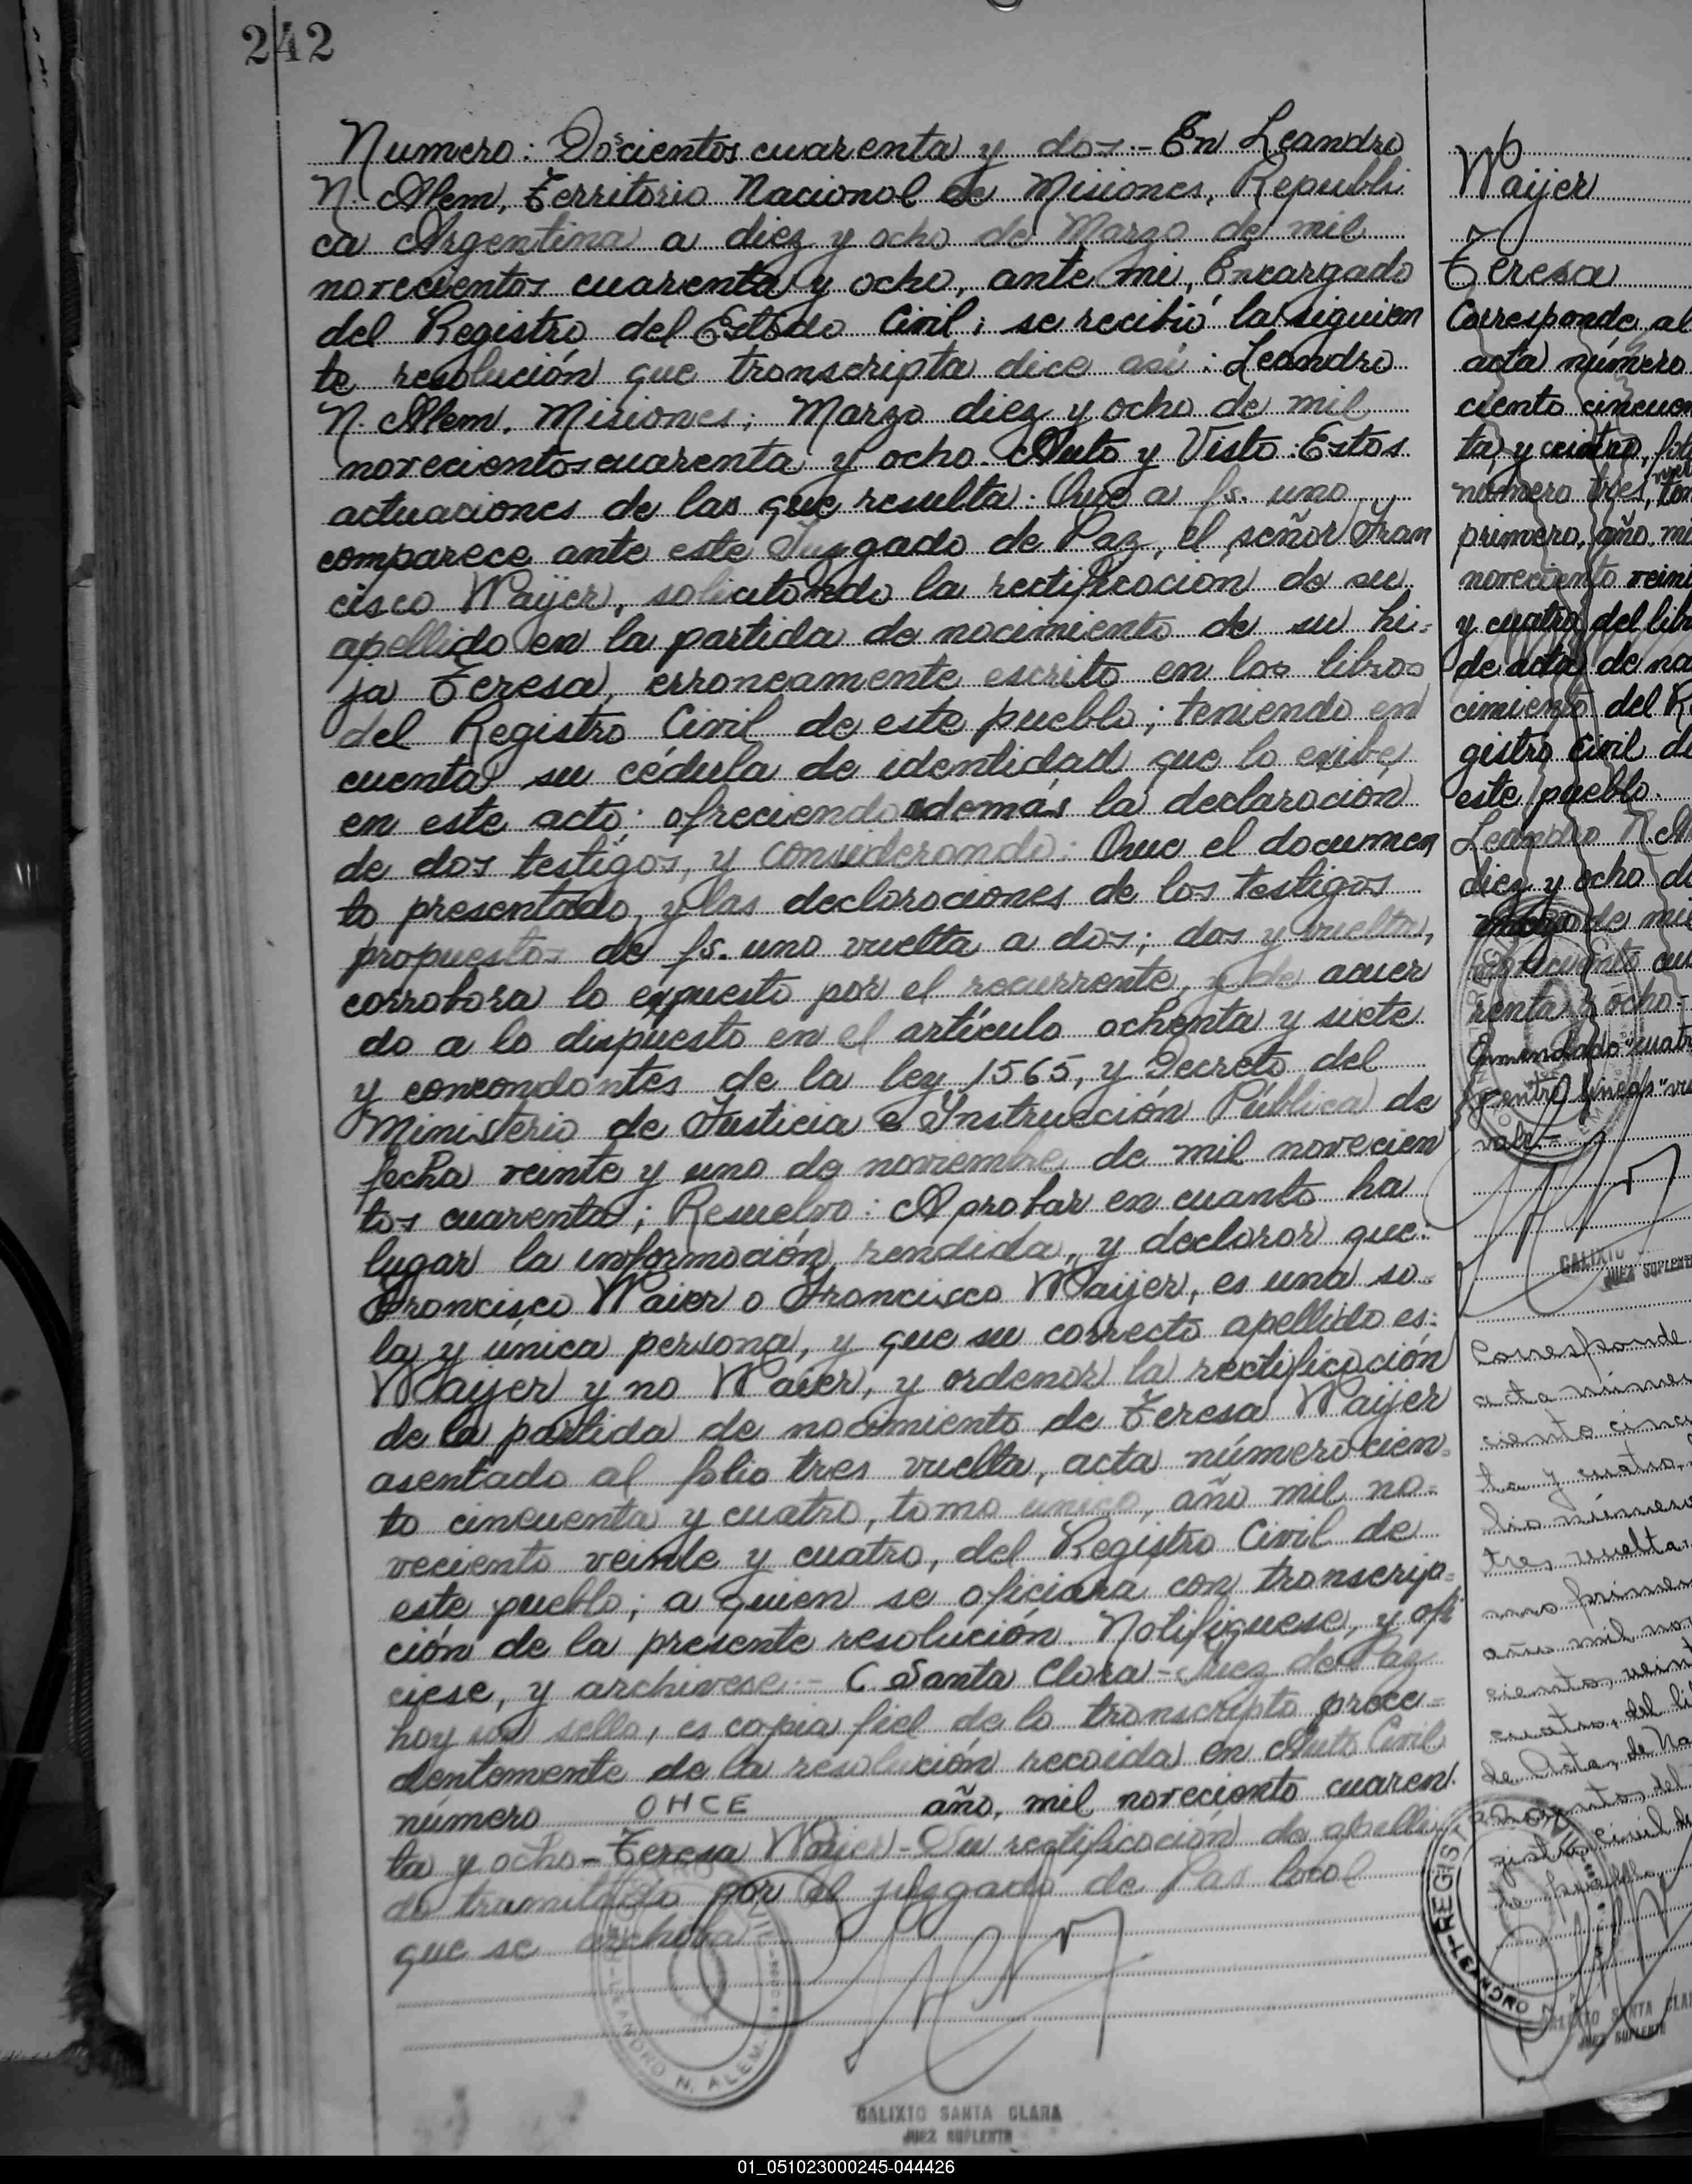 242
Numero: Doscientos cuarenta y dos - En Leandro
N. Alem, Territorio Nacional de Misiones, Republi
ca Argentina a diez y ocho de Marzo de mil
novecientos cuarenta y ocho, ante mi, Encargado
del Registro del Estado Civil; se recibió la siguien
te resolución que transcripta dice así: Leandro
N. Alem, Misiones; Marzo diez y ocho de mil
novecientos cuarenta y ocho. Auto y Visto: Estos
actuaciones de las que resulta: Que a fs. uno
comparece ante este Juzgado de Paz, el señor Fran
cisco Waijer, solicitando la rectificación de su
apellido en la partida de nacimiento de su hi=
ja Teresa, erroneamente escrito en los libros
del Registro Civil de este pueblo; teniendo en
cuenta su cédula de identidad que lo exibe
en este acto; ofreciendo además la declaración
de dos testigos, y considerando: Que el documen
to presentado, y las declaraciones de los testigos
propuestos de fs. uno vuelta a dos; dos y vuelta,
corrobora lo expuesto por el recurrente, y de acuer
do a lo dispuesto en el artículo ochenta y siete
y concondantes de la ley 1565, y Decreto del
Ministerio de Justicia e Instrucción Pública de
fecha veinte y uno de noviembre de mil novecien
tos cuarenta; Resuelvo: Aprobar en cuanto ha
lugar la información rendida, y declarar que:
Francisco Waier o Francisco Waijer, es una so=
la y única persona, y que su correcto apellido es:
Waijer y no Waier, y ordenar la rectificación
de la partida de nacimiento de Teresa Waijer
asentado al folio tres vuelta, acta número cien=
to cincuenta y cuatro, tomo único, año mil no=
veciento veinte y cuatro, del Registro Civil de
este pueblo; a quien se oficiará con transcrip=
ción de la presente resolución. Notifiquese, y ofi
ciese, y archivese.- C Santa Clara - Juez de Paz
hoy un sello, es copia fiel de lo transcripto prece=
dentemente de la resolución recaida en Auto Civil
número OHCE año, mil noveciento cuaren
ta y ocho - Teresa Waijer - Su rectificación de apelli
do tramitado por el juzgado de Paz local
que se archiva
LEANDRO N. ALEM
CALIXTO SANTA CLARA
JUEZ SUPLENTE
Waijer
Teresa
Corresponde al
acta número
ciento cincuen
ta y cuatro, fol
número tres, tom
vuel
primero, año mi
noveciento vein
y cuatro del libr
de acta de na
cimiento del Re
gistro civil de
este pueblo.
Leandro N. Al
diez y ocho de
marzo de mil
noveciento cua
renta y ocho -
Enmendado "cuatr
entre líneas "vu
vale -
CALIXTO
JUEZ SUPLENTE
Corresponde
acta númer
ciento cincu
ta y cuatro,
lio número
tres vuelta
mo primer
año mil nov
ciento, veint
cuatro, del li
de Acta, de Na
cimientos, del
gistro civil de
te pueblo
REGIST
LEANDRO N.
CALIXTO SANTA CLA
JUEZ SUPLENTE
01_051023000245-044426